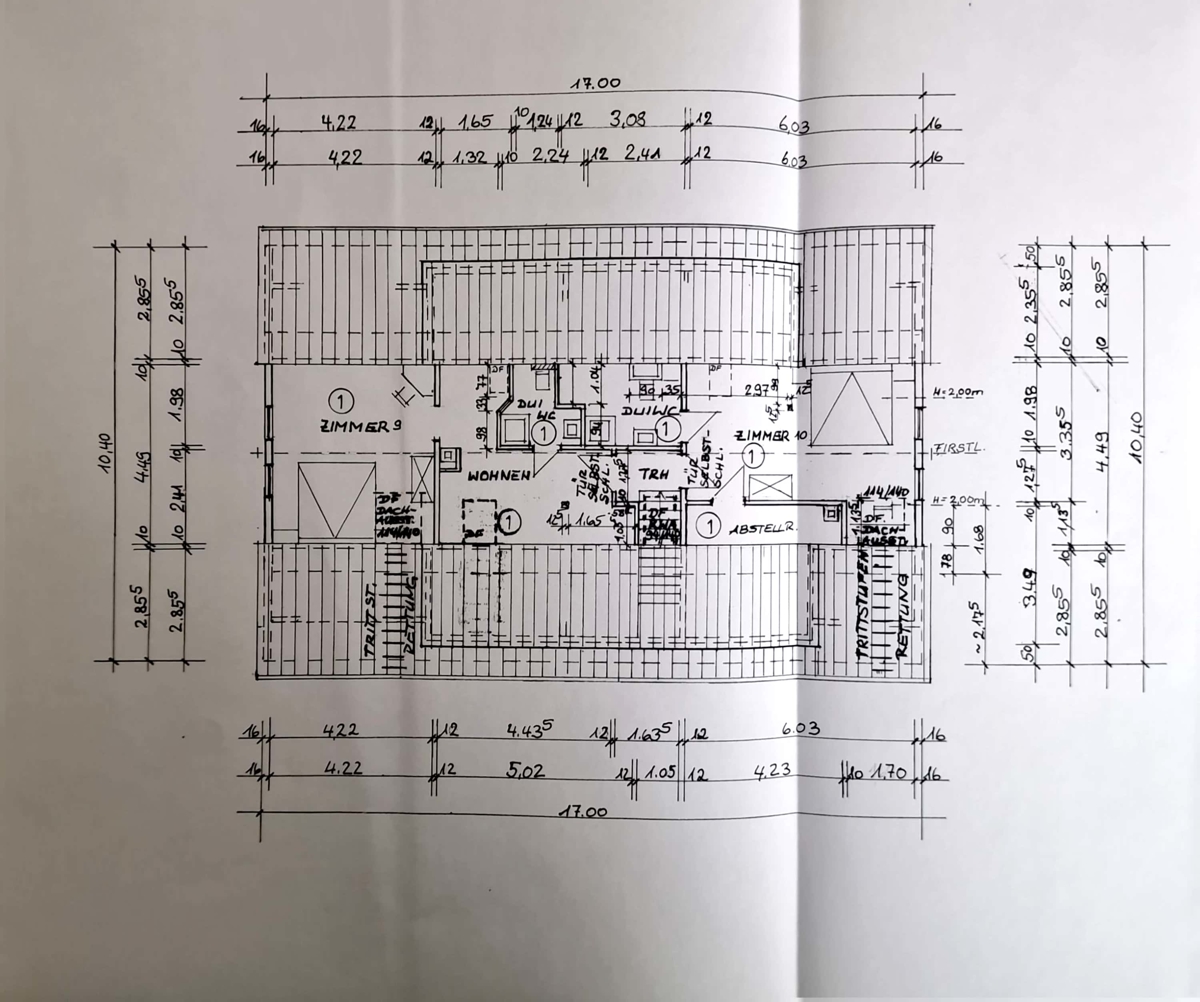 17.00
16 4,22 12 1,65 10 1,24 12 3,08 12 6,03 16
16 4,22 12 1,32 10 2,24 12 2,41 12 6,03 16
10,40
2,85⁵ 10 4.49 10 2,85⁵
2,85⁵ 10 1.98 10 2,41 10 2.85⁵
DF
77
33
98
DU/
WC
1
1.04
94
90
35
DU/WC
1
DF
297
12⁵
1
ZIMMER 9
ZIMMER 10
1
WOHNEN
TÜR
SELBST-
SCHL.
TRH
TÜR
SELBST-
SCHL.
DF
DACH-
AUSST.
114/140
1
DF
12⁵
1.65
DF
RWA
1
ABSTELLR.
114/140
DF
DACH-
AUSST.
1,35
H=2,00m
FIRSTL.
H=2,00m
TRITTST.
RETTUNG
TRITTSTUFEN
RETTUNG
90
78
1.68
~2,17⁵
50 2,35⁵ 10 1.98 10 1,27⁵ 10 3.49 50
2,85⁵ 10 3.35⁵ 1,13⁵ 10 2,85⁵
2,85⁵ 10 4,49 10 2,85⁵
10,40
16 4,22 12 4.43⁵ 12 1.63⁵ 12 6.03 16
16 4.22 12 5,02 12 1.05 12 4,23 10 1,70 16
17.00